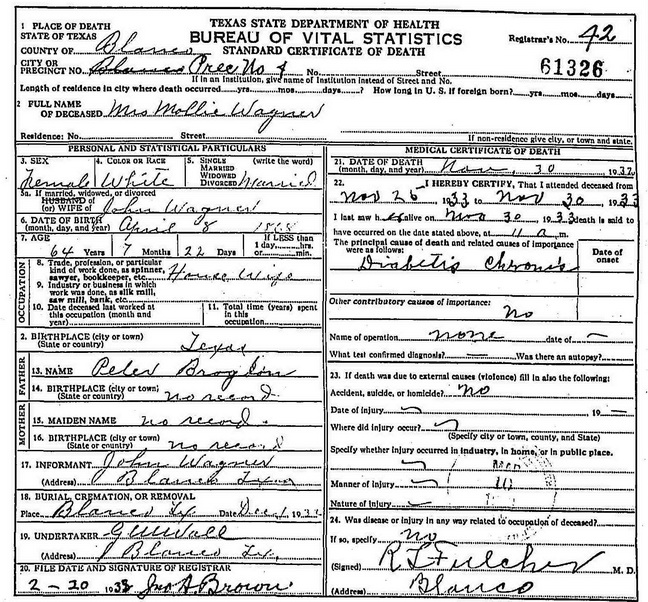 TEXAS STATE DEPARTMENT OF HEALTH
BUREAU OF VITAL STATISTICS
STANDARD CERTIFICATE OF DEATH
Registrar's No. 42
61326
1 PLACE OF DEATH
STATE OF TEXAS
COUNTY OF Blanco
CITY OR
PRECINCT NO. Blanco Prec No 4 No. Street
If in an Institution, give name of Institution instead of Street and No.
Length of residence in city where death occurred yrs. mos. days? How long in U. S. if foreign born? yrs. mos. days
2 FULL NAME
OF DECEASED Mrs Mollie Wagner
Residence: No. Street
If non-residence give city, or town and state.
PERSONAL AND STATISTICAL PARTICULARS
3. SEX Female
4. COLOR OR RACE White
5. SINGLE MARRIED WIDOWED DIVORCED (write the word) Married
5a. If married, widowed, or divorced
HUSBAND of
(or) WIFE of John Wagner
6. DATE OF BIRTH
(month, day, and year) April 8 1868
7. AGE 64 Years 7 Months 22 Days
If LESS than
1 day, hrs.
or min.
OCCUPATION
8. Trade, profession, or particular
kind of work done, as spinner,
sawyer, bookkeeper, etc. House Wife
9. Industry or business in which
work was done, as silk mill,
saw mill, bank, etc.
10. Date deceased last worked at
this occupation (month and
year)
11. Total time (years) spent
in this
occupation
2. BIRTHPLACE (city or town)
(State or country) Texas
FATHER
13. NAME Peter
14. BIRTHPLACE (city or town)
(State or country) no record
MOTHER
15. MAIDEN NAME no record
16. BIRTHPLACE (city or town)
(State or country) no record
17. INFORMANT John Wagner
(Address) Blanco Tex
18. BURIAL, CREMATION, OR REMOVAL
Place Blanco Tx Date Dec 1 19
19. UNDERTAKER
(Address) Blanco Tx.
20. FILE DATE AND SIGNATURE OF REGISTRAR
2-20 19 Jno A Brown
MEDICAL CERTIFICATE OF DEATH
21. DATE OF DEATH
(month, day, and year) Nov. 30 19
22. I HEREBY CERTIFY, That I attended deceased from
Nov 26 1933 to Nov 30 1933
I last saw her alive on Nov 30 1933 death is said to
have occurred on the date stated above, at 11 a m.
The principal cause of death and related causes of importance
were as follows:
Date of
onset
Diabetis Chronis
Other contributory causes of importance:
No
Name of operation none date of —
What test confirmed diagnosis? — Was there an autopsy?
23. If death was due to external causes (violence) fill in also the following:
Accident, suicide, or homicide? no
Date of injury 19 —
Where did injury occur?
(Specify city or town, county, and State)
Specify whether injury occurred in industry, in home, or in public place.
Manner of injury
Nature of injury
24. Was disease or injury in any way related to occupation of deceased?
If so, specify no
(Signed) R L Fulcher M. D.
(Address) Blanco